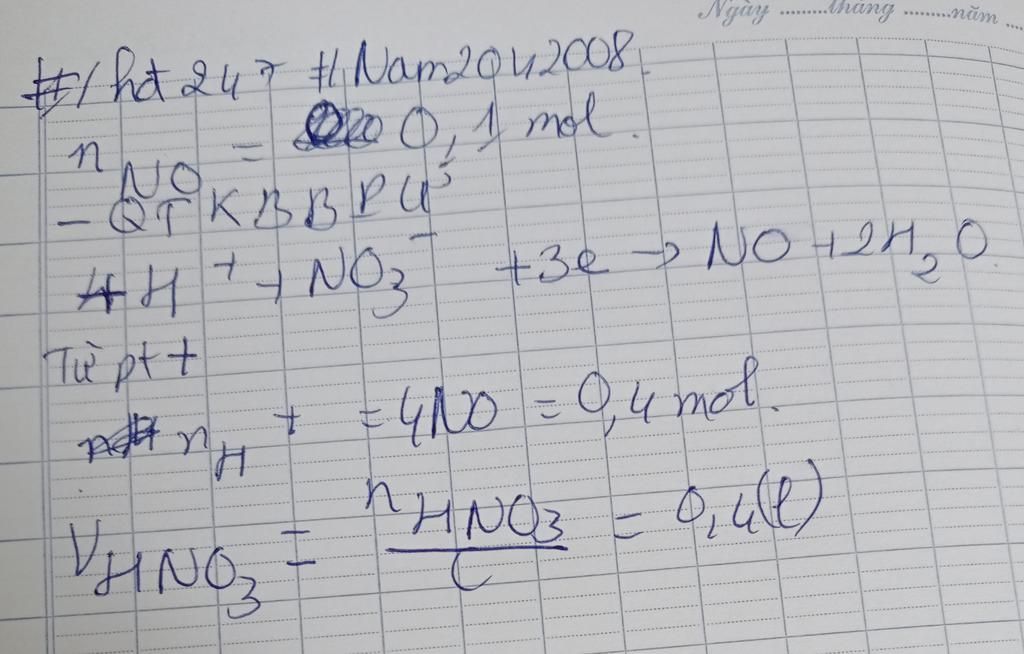 Ngày ........tháng ........năm ....
#/hđ 247 #/Nam2042008
n NO = 0,1 mol.
- QT K B B P Ư
4H⁺ + NO₃⁻ +3e → NO +2H₂O
Từ pt t
n H⁺ = 4NO = 0,4 mol.
V HNO₃ = n HNO₃ / C = 0,4(l)